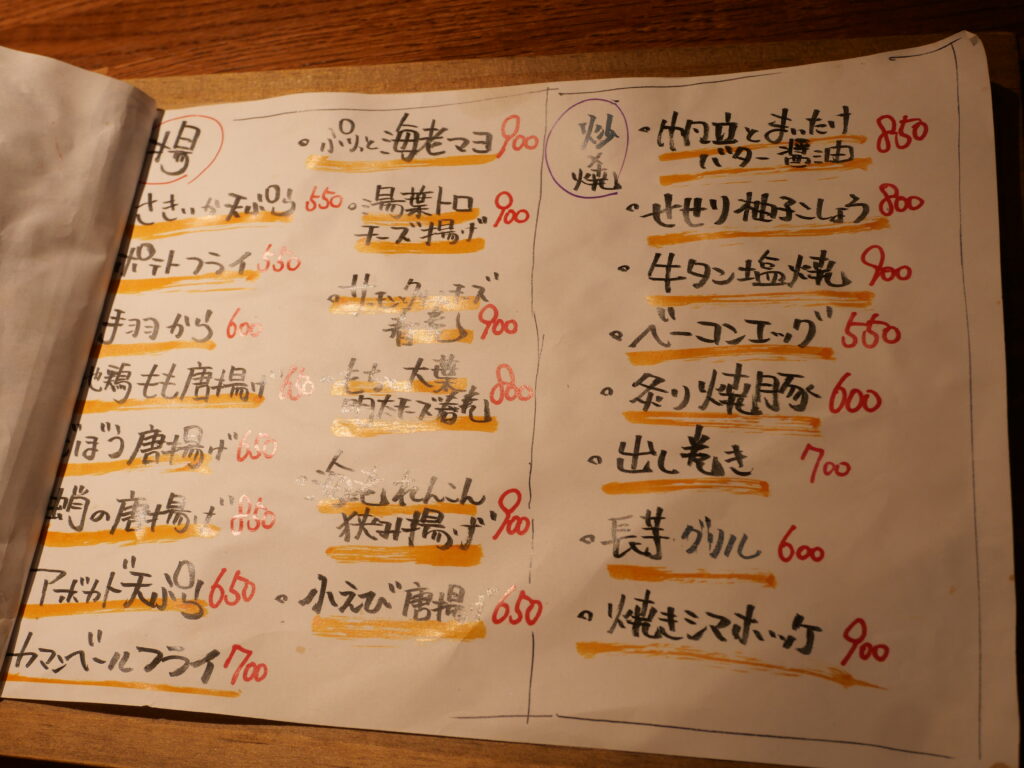 揚
さきいか天ぷら 550
ポテトフライ 550
手羽から 600
鶏もも唐揚げ
ごぼう唐揚げ 650
蛸の唐揚げ
アボカド天ぷら 650
カマンベールフライ 700
・ぷりっと海老マヨ 900
・湯葉トロ
チーズ揚げ 900
・サーモンクリームチーズ
春巻き 900
大葉
チーズ春巻 800
れんこん
挟み揚げ 900
・小えび唐揚 650
炒
×
焼
・帆立とまいたけ
バター醤油 850
・せせり柚子こしょう 800
・牛タン塩焼 900
・ベーコンエッグ 550
・炙り焼豚 600
・出し巻き 700
・長芋グリル 600
・焼きシマホッケ 900